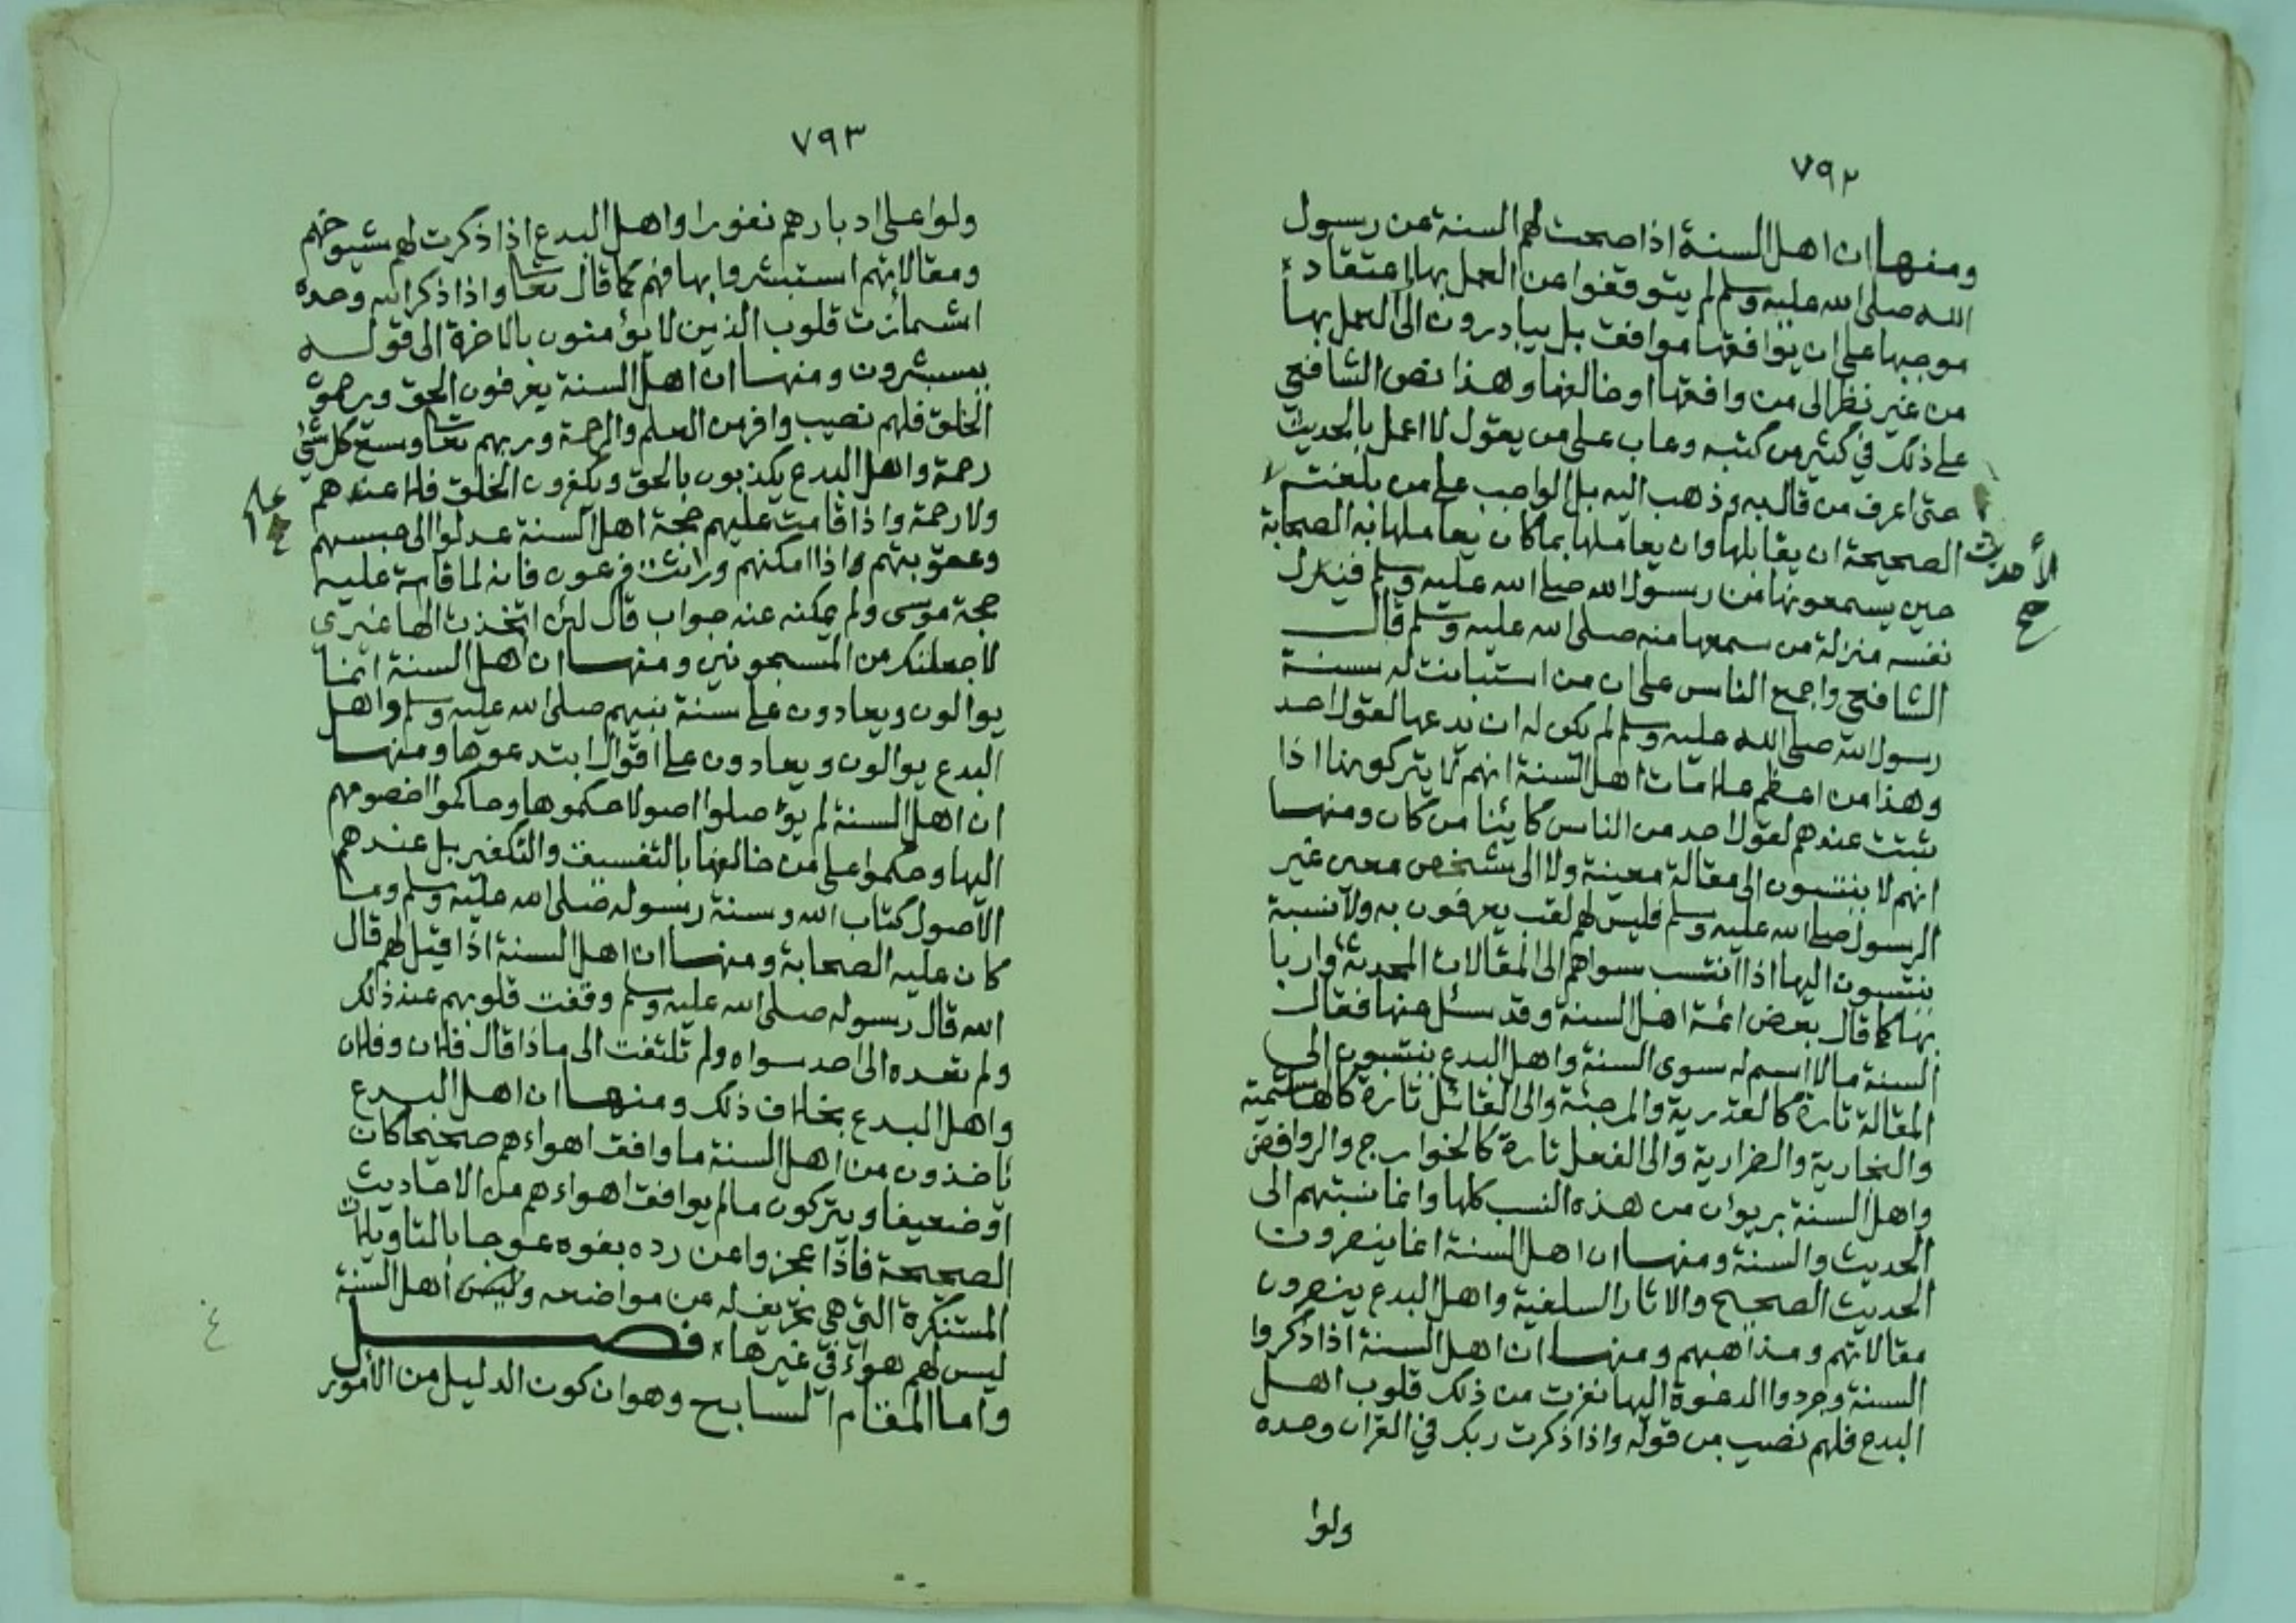 ٧٩٢
ومنها ان اهل السنة اذا صحت لهم السنة عن رسول
الله صلى الله عليه وسلم لم يتوقفوا عن العمل بها واعتقاد
موجبها على ان يوافقها موافق بل يبادرون الى العمل بها
من غير نظر الى من وافقها او خالفها وهذا نص الشافعي
على ذلك في كثير من كتبه وعاب على من يقول لا اعمل بالحديث
حتى اعرف من قال به وذهب اليه بل الواجب على من بلغته
الصحيحة ان يقابلها وان يعاملها بما كان يعاملها به الصحابة
الأحاديث صح
حين يسمعونها من رسول الله صلى الله عليه وسلم فينزل
نفسه منزلة من سمعها منه صلى الله عليه وسلم قال
الشافعي واجمع الناس على ان من استبانت له سنة
رسول الله صلى الله عليه وسلم لم يكن له ان يدعها لقول احد
وهذا من اعظم علامات اهل السنة انهم لا يتركونها اذا
ثبتت عندهم لقول احد من الناس كائنا من كان ومنها
انهم لا ينتسبون الى مقالة معينة ولا الى شخص معين غير
الرسول صلى الله عليه وسلم فليس لهم لقب يعرفون به ولا نسبة
ينتسبون اليها اذا انتسب سواهم الى المقالات المحدثة واربا
بها كما قال بعض ائمة اهل السنة وقد سئل عنها فقال
السنة مالا اسم له سوى السنة واهل البدع ينتسبون الى
المقالة تارة كالقدرية والمرجئة والى القائل تارة كالهاشمية
والنجارية والضرارية والى الفعل تارة كالخوارج والروافض
واهل السنة بريؤن من هذه النسب كلها وانما نسبتهم الى
الحديث والسنة ومنها ان اهل السنة انما ينصرون
الحديث الصحيح والاثار السلفية واهل البدع ينصرون
مقالاتهم ومذاهبهم ومنها ان اهل السنة اذا ذكروا
السنة وجردوا الدعوة اليها نفرت من ذلك قلوب اهل
البدع فلهم نصيب من قوله واذا ذكرت ربك في القران وحده
ولوا
٧٩٣
ولوا على ادبارهم نفورا واهل البدع اذا ذكرت لهم شيوخهم
ومقالاتهم استبشروا بها فهم كما قال تعا واذا ذكر الله وحده
اشمازت قلوب الذين لا يؤمنون بالاخرة الى قوله
يستبشرون ومنها ان اهل السنة يعرفون الحق ويرحمون
الخلق فلهم نصيب وافر من العلم والرحمة وربهم تعا وسع كل شئ
رحمة واهل البدع يكذبون بالحق ويكفرون الخلق فلا عندهم
علم
ولا رحمة واذا قامت عليهم حجة اهل السنة عدلوا الى حبسهم
وعقوبتهم اذا امكنهم وراثت فرعون فانه لما قامة عليه
حجة موسى ولم يمكنه عنه جواب قال لئن اتخذت الها غيري
لاجعلنك من المسجونين ومنها ان اهل السنة انما
يوالون ويعادون على سنة نبيهم صلى الله عليه وسلم واهل
البدع يوالون ويعادون على اقوال ابتدعوها ومنها
ان اهل السنة لم يؤصلوا اصولا حكموها وحاكموا خصومهم
اليها وحكموا على من خالفها بالتفسيق والتكفير بل عندهم
الاصول كتاب الله وسنة رسوله صلى الله عليه وسلم وما
كان عليه الصحابة ومنها ان اهل السنة اذا قيل لهم قال
الله قال رسوله صلى الله عليه وسلم وقفت قلوبهم عند ذلك
ولم تعده الى احد سواه ولم تلتفت الى ماذا قال فلان وفلان
واهل البدع بخلاف ذلك ومنها ان اهل البدع
ياخذون من اهل السنة ما وافق اهواءهم صحيحا كان
او ضعيفا ويتركون مالم يوافق اهواءهم من الاحاديث
الصحيحة فاذا عجزوا عن رده بغوه عوجا بالتاويلات
المستنكرة التي هي تحريف له عن مواضعه وليس اهل السنة
ليس لهم هواء في غيرها فصل
واما المقام السابع وهو ان كون الدليل من الأمور